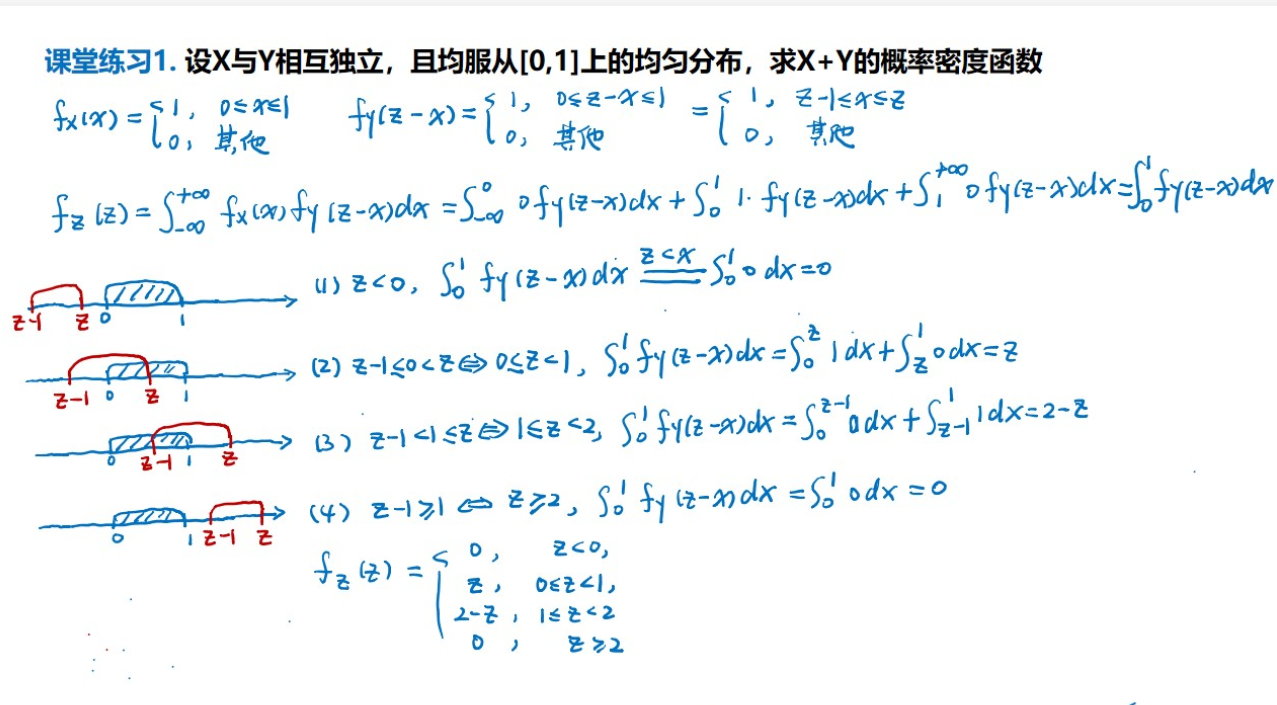 课堂练习1. 设X与Y相互独立，且均服从[0,1]上的均匀分布，求X+Y的概率密度函数
f_X(x) = { 1, 0≤x≤1; 0, 其他 f_Y(z-x) = { 1, 0≤z-x≤1; 0, 其他 = { 1, z-1≤x≤z; 0, 其他
f_Z(z) = ∫_{-∞}^{+∞} f_X(x) f_Y(z-x)dx = ∫_{-∞}^{0} 0 f_Y(z-x)dx + ∫_0^1 1· f_Y(z-x)dx + ∫_1^{+∞} 0 f_Y(z-x)dx = ∫_0^1 f_Y(z-x)dx
(1) z<0, ∫_0^1 f_Y(z-x)dx =(z<x)= ∫_0^1 0 dx=0
z-1 z 0 1
(2) z-1≤0<z ⇔ 0≤z<1, ∫_0^1 f_Y(z-x)dx = ∫_0^z 1dx + ∫_z^1 0dx = z
z-1 0 z 1
(3) z-1<1≤z ⇔ 1≤z<2, ∫_0^1 f_Y(z-x)dx = ∫_0^{z-1} 0dx + ∫_{z-1}^1 1dx = 2-z
0 z-1 1 z
(4) z-1≥1 ⇔ z≥2, ∫_0^1 f_Y(z-x)dx = ∫_0^1 0dx = 0
0 1 z-1 z
f_Z(z) = { 0, z<0,
z, 0≤z<1,
2-z, 1≤z<2
0, z≥2